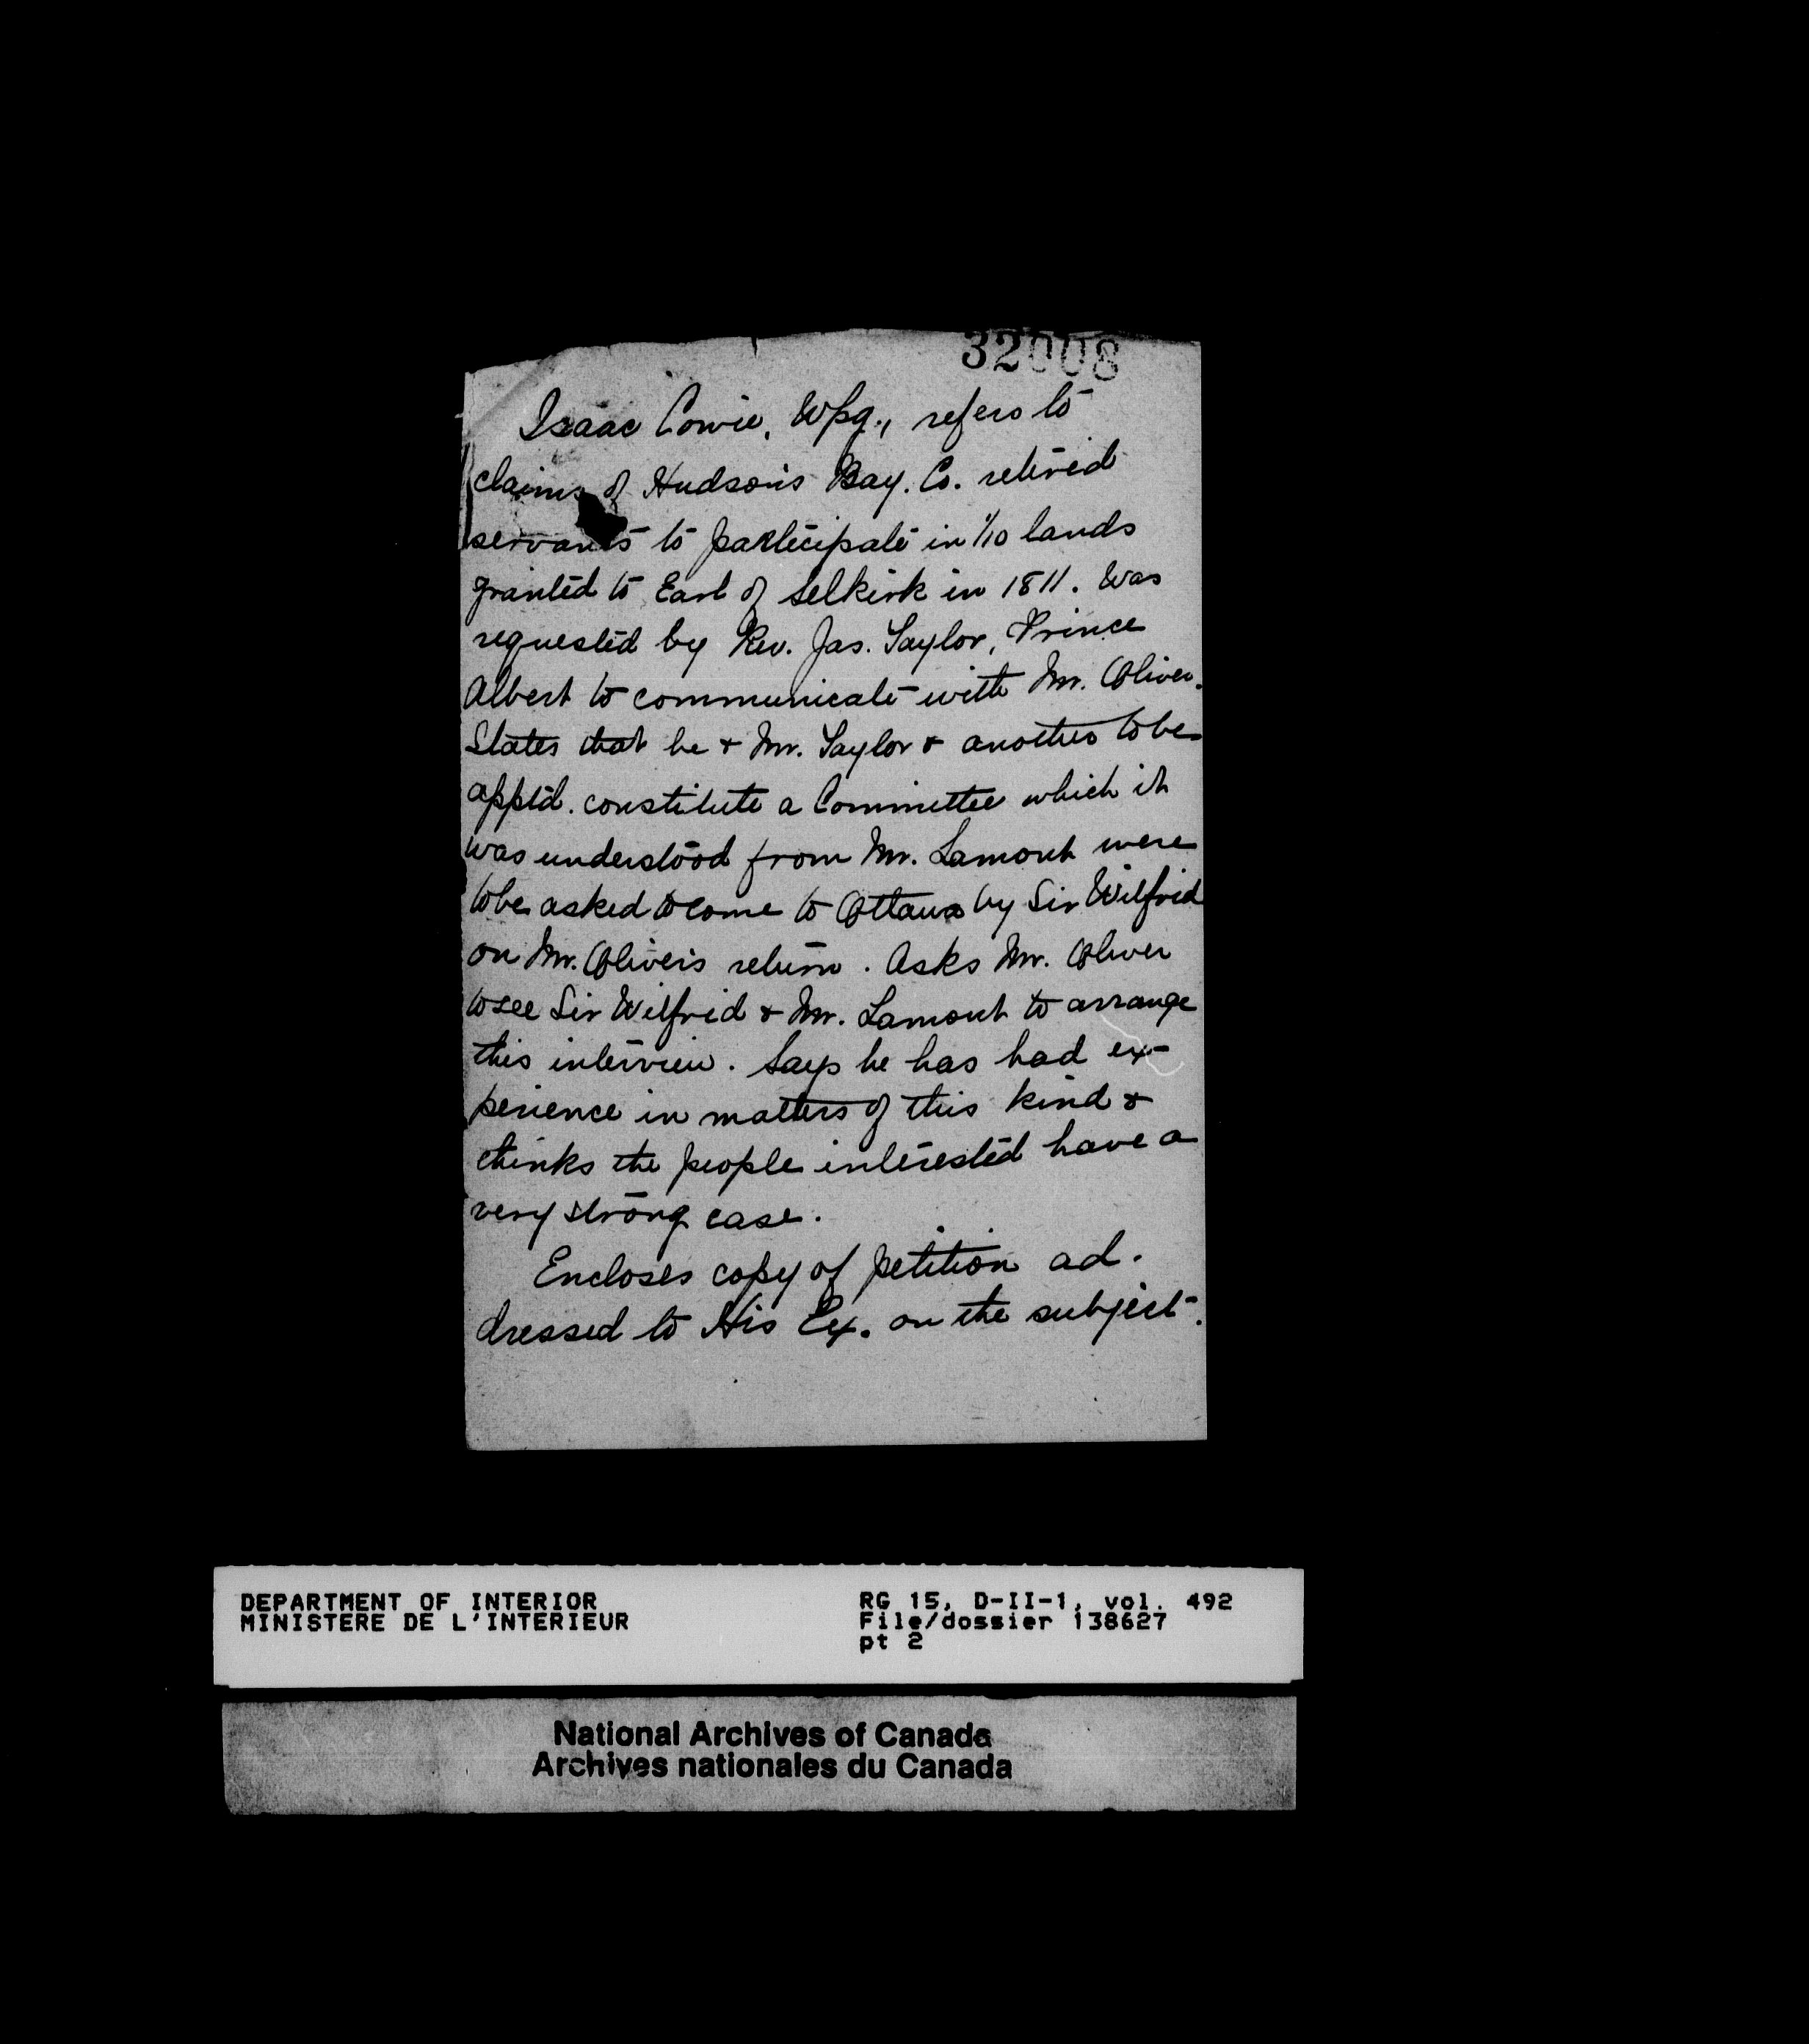 32008
Isaac Cowie, Wpg., refers to
claims of Hudson's Bay. Co. retired
servants to participate in 1/10 lands
granted to Earl of Selkirk in 1811. Was
requested by Rev. Jas. Taylor, Prince
Albert to communicate with Mr. Oliver.
States that he & Mr. Taylor & another to be
apptd. constitute a Committee which it
was understood from Mr. Lamont were
to be asked to come to Ottawa by Sir Wilfrid
on Mr. Oliver's return. Asks Mr. Oliver
to see Sir Wilfrid & Mr. Lamont to arrange
this interview. Says he has had ex-
perience in matters of this kind &
thinks the people interested have a
very strong case.
Encloses copy of petition ad-
dressed to His Ex. on the subject.
DEPARTMENT OF INTERIOR RG 15, D-II-1, vol. 492
MINISTERE DE L'INTERIEUR File/dossier 138627
pt 2
National Archives of Canada
Archives nationales du Canada